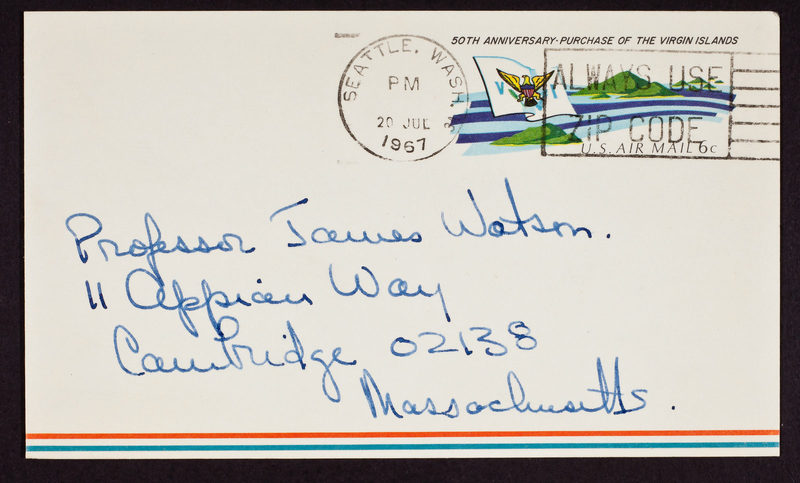 50TH ANNIVERSARY·PURCHASE OF THE VIRGIN ISLANDS
SEATTLE, WASH.
PM
20 JUL
1967
V I
ALWAYS USE
ZIP CODE
U.S. AIR MAIL 6c
Professor James Watson.
11 Appian Way
Cambridge 02138
Massachusetts.